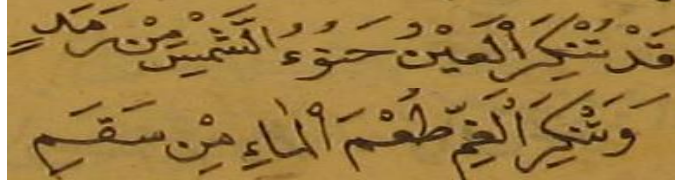 قَدْ تُنْكِرُ ٱلْعَيْنُ ضَوْءَ الشَّمْسِ مِنْ رَمَدٍ
وَيُنْكِرُ ٱلْفَمُّ طُعْمَ ٱلْمَاءِ مِنْ سَقَمِ